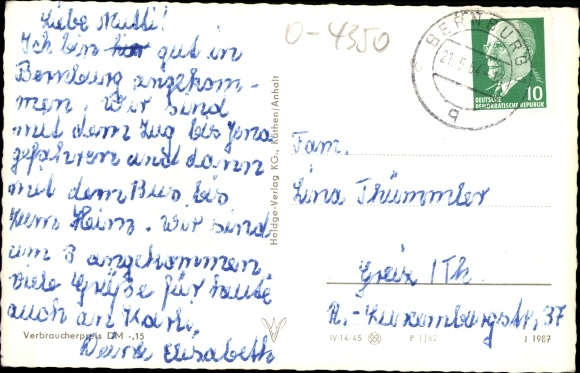 Liebe Mutti!
Ich bin hier gut in
Bernburg angekom-
men. Wir sind
mit dem Zug bis Jena
gefahren und dann
mit dem Bus bis
zum Heim. Wir sind
um 3 angekommen
viele Grüße für heute
auch an Karl,
Deine Elisabeth
Verbraucherpreis DM -,15
Heldge-Verlag KG., Köthen/Anhalt
0-4350
BERNBURG
21.5.64
q
10
DEUTSCHE
DEMOKRATISCHE REPUBLIK
Fam.
Lina Thümmler
Greiz / Th.
R.-Luxemburgstr. 37
IV-14-45 P 1/62 J 1987